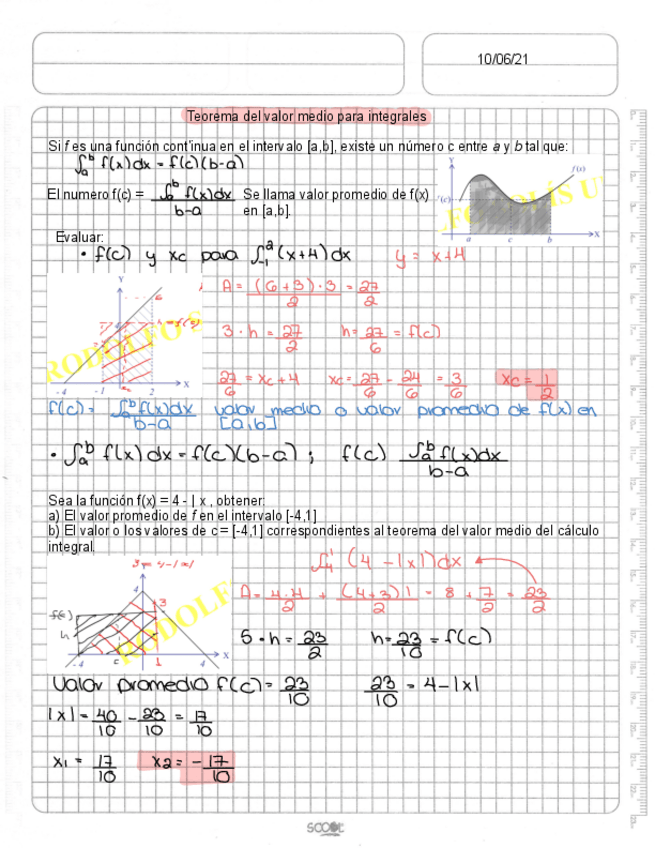 10/06/21
Teorema del valor medio para integrales
Si f es una función cont'inua en el intervalo [a,b], existe un número c entre a y b tal que:
∫ₐᵇ f(x) dx = f(c) (b-a)
El numero f(c) = ∫ₐᵇ f(x)dx / b-a Se llama valor promedio de f(x) en [a,b].
f(x)
f(c)
Y
a c b X
Evaluar:
• f(c) y xc para ∫₋₁² (x+4) dx y = x+4
A = (6+3)·3 / 2 = 27/2
3·h = 27/2 h = 27/6 = f(c)
27/6 = xc + 4 xc = 27/6 - 24/6 = 3/6 xc = 1/2
Y
h = f(c)
-4 -1 2 X
RODOLFO S
f(c) = ∫ₐᵇ f(x)dx / b-a valor medio o valor promedio de f(x) en [a,b]
• ∫ₐᵇ f(x) dx = f(c) (b-a) ; f(c) ∫ₐᵇ f(x)dx / b-a
Sea la función f(x) = 4 - | x , obtener:
a) El valor promedio de f en el intervalo [-4,1]
b) El valor o los valores de c = [-4,1] correspondientes al teorema del valor medio del cálculo
integral.
y = 4-|x|
∫₋₄¹ (4 - |x|) dx
A = 4·4 / 2 + (4+3)1 / 2 = 8 + 7/2 = 23/2
4
3
f(c)
h
-4 c 1 4 X
RODOLF
5·h = 23/2 h = 23/10 = f(c)
Valor promedio f(c) = 23/10 23/10 = 4 - |x|
|x| = 40/10 - 23/10 = 17/10
x1 = 17/10 x2 = -17/10
SCOOL